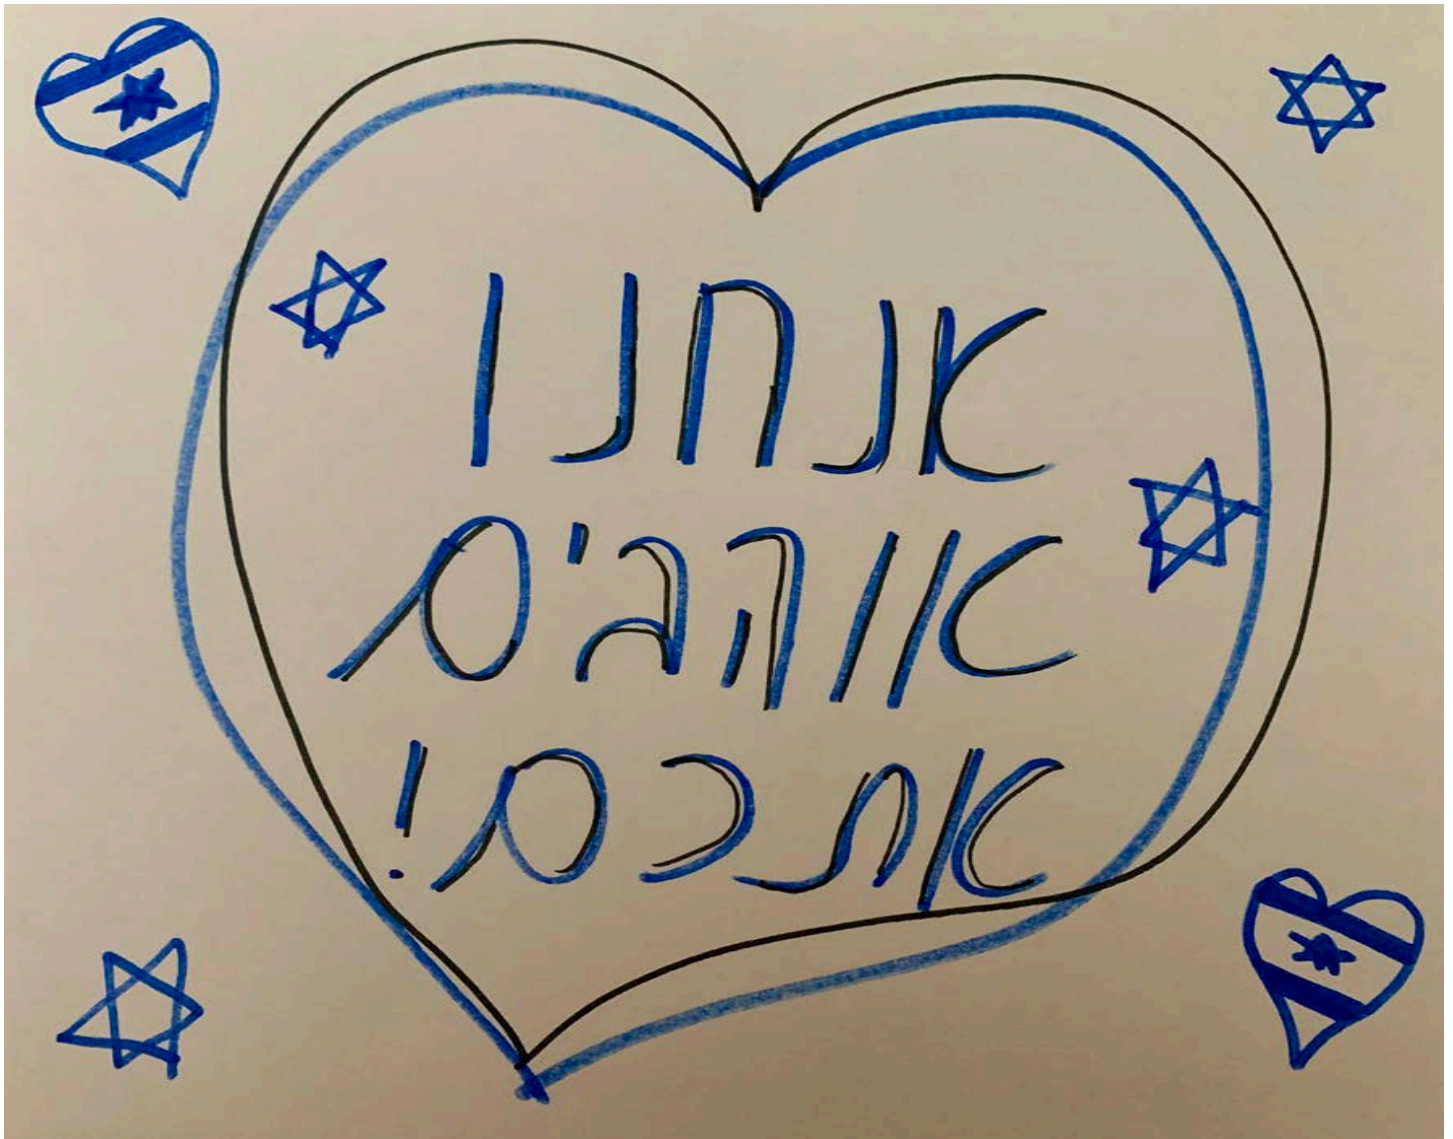 אנחנו
אוהבים
אתכם!